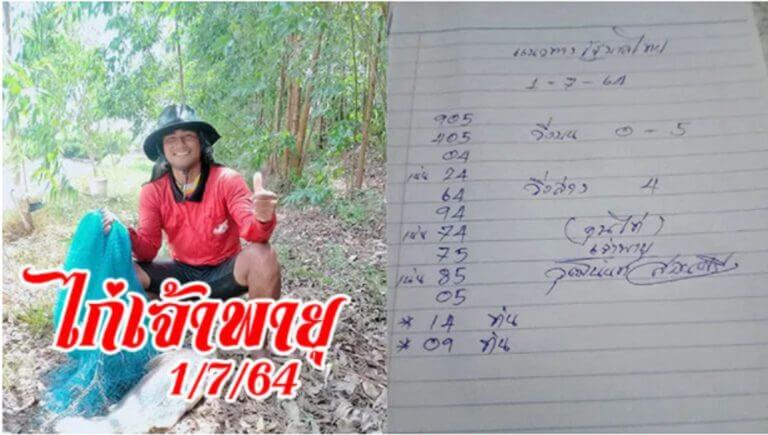 ไก่เจ้าพายุ
1/7/64
แนวทางรัฐบาลไทย
1-7-64
905
405 วิ่งบน 0-5
04
เน้น 24
64 วิ่งล่าง 4
94
เน้น 74 (ขุนไก่)
75 เจ้าพายุ
เน้น 85
05
* 14 ทุ่น
* 09 ทุ่น